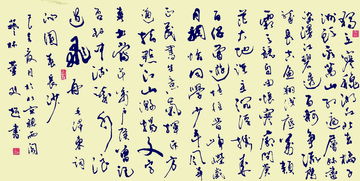 独立寒秋湘江北去橘
子洲头看万山红遍层
林尽染漫江碧透百舸争流鹰
击长空鱼翔浅底万类
霜天竞自由怅寥廓问苍
茫大地谁主沉浮携来
百侣曾游忆往昔峥嵘岁
月稠恰同学少年风华
正茂书生意气挥斥方
遒指点江山激扬文字
粪土当年万户侯曾记
否到中流击水浪
遏飞舟毛泽东词
沁园春长沙